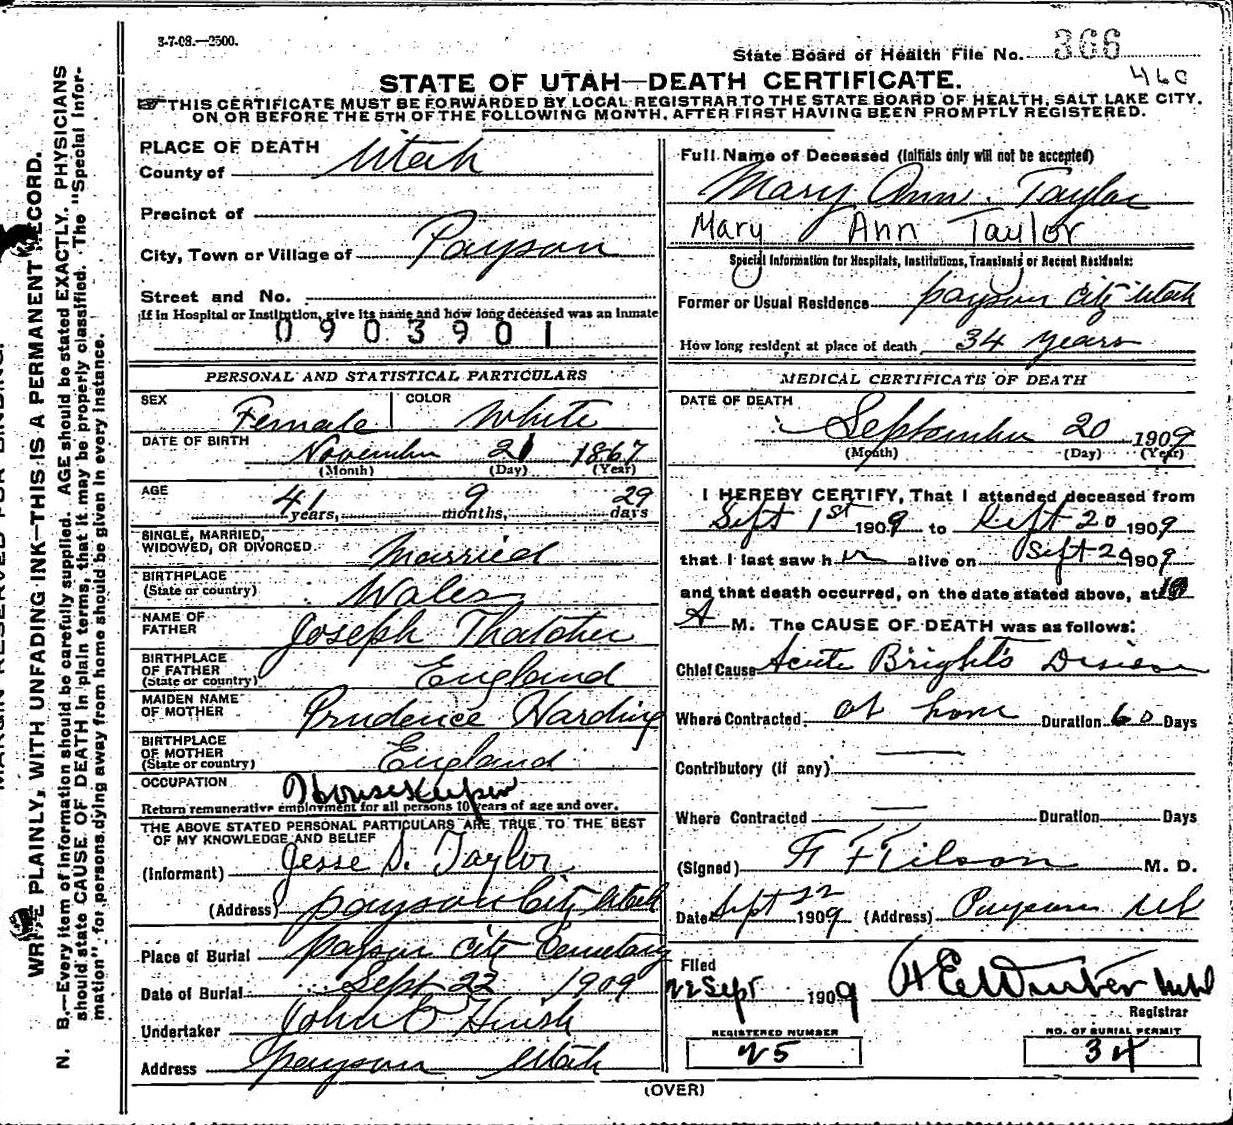 3-7-08.—2500.
State Board of Health File No. 366
460
STATE OF UTAH—DEATH CERTIFICATE.
THIS CERTIFICATE MUST BE FORWARDED BY LOCAL REGISTRAR TO THE STATE BOARD OF HEALTH, SALT LAKE CITY,
ON OR BEFORE THE 5TH OF THE FOLLOWING MONTH, AFTER FIRST HAVING BEEN PROMPTLY REGISTERED.
PLACE OF DEATH
County of Utah
Precinct of
City, Town or Village of Payson
Street and No.
If in Hospital or Institution, give its name and how long deceased was an Inmate
0903901
PERSONAL AND STATISTICAL PARTICULARS
SEX Female COLOR White
DATE OF BIRTH November 21 1867
(Month) (Day) (Year)
AGE 41 years, 9 months, 29 days
SINGLE, MARRIED,
WIDOWED, OR DIVORCED. Married
BIRTHPLACE
(State or country) Wales
NAME OF
FATHER Joseph Thatcher
BIRTHPLACE
OF FATHER
(State or country) England
MAIDEN NAME
OF MOTHER Prudence Harding
BIRTHPLACE
OF MOTHER
(State or country) England
OCCUPATION Housekeeper
Return remunerative employment for all persons 10 years of age and over.
THE ABOVE STATED PERSONAL PARTICULARS ARE TRUE TO THE BEST
OF MY KNOWLEDGE AND BELIEF
(Informant) Jesse S. Taylor
(Address) Payson City Utah
Place of Burial Payson City Cemetary
Date of Burial Sept 22 1909
Undertaker John
Address Payson Utah
Full Name of Deceased (Initials only will not be accepted)
Mary Ann. Taylor
Mary Ann Taylor
Special Information for Hospitals, Institutions, Transients or Recent Residents:
Former or Usual Residence Payson City Utah
How long resident at place of death 34 years
MEDICAL CERTIFICATE OF DEATH
DATE OF DEATH
September 20 1909
(Month) (Day) (Year)
I HEREBY CERTIFY, That I attended deceased from
Sept 1st 1909 to Sept 20 1909
that I last saw her alive on Sept 20 1909
and that death occurred, on the date stated above, at
A M. The CAUSE OF DEATH was as follows:
Chief Cause Acute Bright's Disease
Where Contracted at home Duration 60 Days
Contributory (if any)
Where Contracted Duration Days
(Signed) Tilson M. D.
Date Sept 22 1909 (Address) Payson Ut
Filed
22 Sept 1909
Registrar
REGISTERED NUMBER
25
NO. OF BURIAL PERMIT
34
(OVER)
MARGIN RESERVED FOR BINDING.
WRITE PLAINLY, WITH UNFADING INK—THIS IS A PERMANENT RECORD.
N. B.—Every item of information should be carefully supplied. AGE should be stated EXACTLY. PHYSICIANS
should state CAUSE OF DEATH in plain terms, that it may be properly classified. The "Special Infor-
mation" for persons dying away from home should be given in every instance.